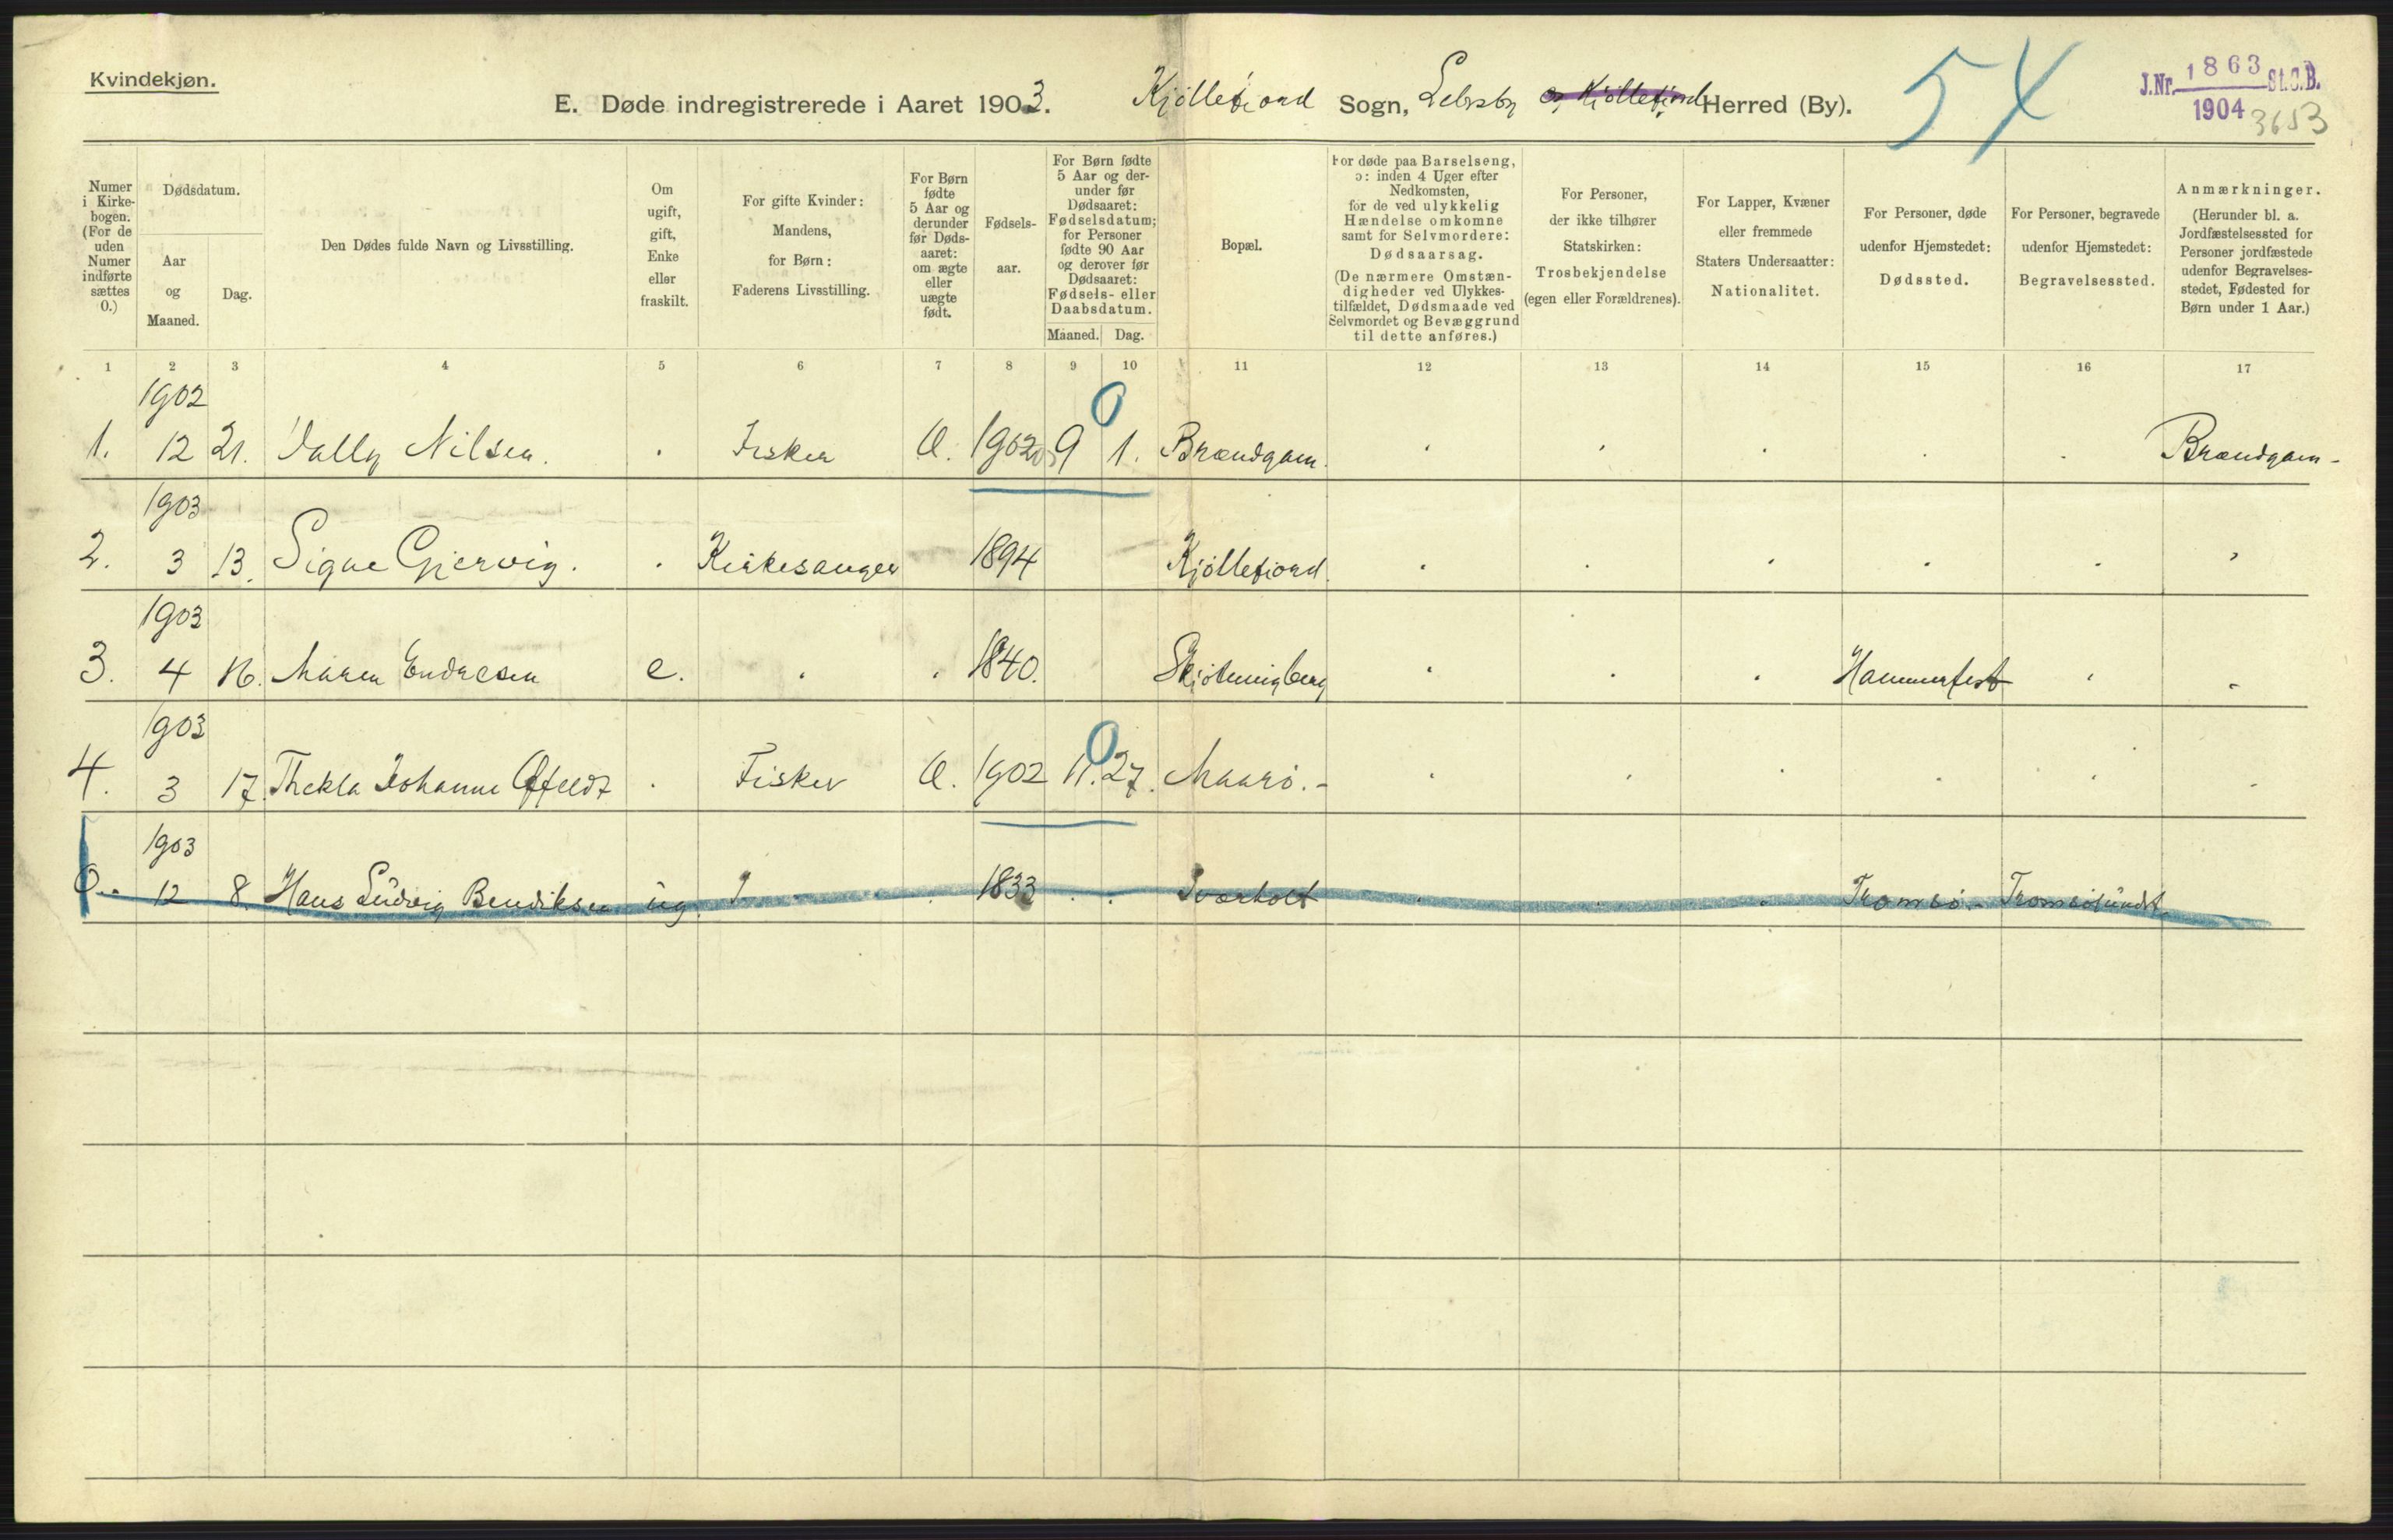 Kvindekjøn.
E. Døde indregistrerede i Aaret 1903. Kjøllefjord Sogn, Lebesby og Kjøllefjord Herred (By).
54
J.Nr. 1863 St.C.B.
1904
3653
Numer i Kirke-bogen. (For de uden Numer indførte sættes 0.)
Dødsdatum.
Aar og Maaned.
Dag.
Den Dødes fulde Navn og Livsstilling.
Om ugift, gift, Enke eller fraskilt.
For gifte Kvinder: Mandens, for Børn: Faderens Livsstilling.
For Børn fødte 5 Aar og derunder før Døds-aaret: om ægte eller uægte født.
Fødsels-aar.
For Børn fødte 5 Aar og der-under før Dødsaaret: Fødselsdatum; for Personer fødte 90 Aar og derover før Dødsaaret: Fødsels- eller Daabsdatum.
Maaned. Dag.
Bopæl.
For døde paa Barselseng, ɔ: inden 4 Uger efter Nedkomsten, for de ved ulykkelig Hændelse omkomne samt for Selvmordere: Dødsaarsag. (De nærmere Omstæn-digheder ved Ulykkes-tilfældet, Dødsmaade ved Selvmordet og Bevæggrund til dette anføres.)
For Personer, der ikke tilhører Statskirken: Trosbekjendelse (egen eller Forældrenes).
For Lapper, Kvæner eller fremmede Staters Undersaatter: Nationalitet.
For Personer, døde udenfor Hjemstedet: Dødssted.
For Personer, begravede udenfor Hjemstedet: Begravelsessted.
Anmærkninger. (Herunder bl. a. Jordfæstelsessted for Personer jordfæstede udenfor Begravelses-stedet, Fødested for Børn under 1 Aar.)
1 2 3 4 5 6 7 8 9 10 11 12 13 14 15 16 17
1902
0
1. 12 21. Vally Nilsen. Fisker Æ. 1902 9 1. Brændgam. Brændgam-
1903
2. 3 13. Signe Gjervig. Kirkesanger 1894 Kjøllefjord.
1903
3. 4 16. Maren Endresen e. 1840. Skjøtningberg Hammerfest
1903
0
4. 3 17. Thekla Johanne Offeldt Fisker Æ. 1902 11. 27. Maarø.-
1903
0. 12 8. Hans Ludvig Bendiksen ug. 1833 Sværholt Tromsø.- Tromsøsundet.